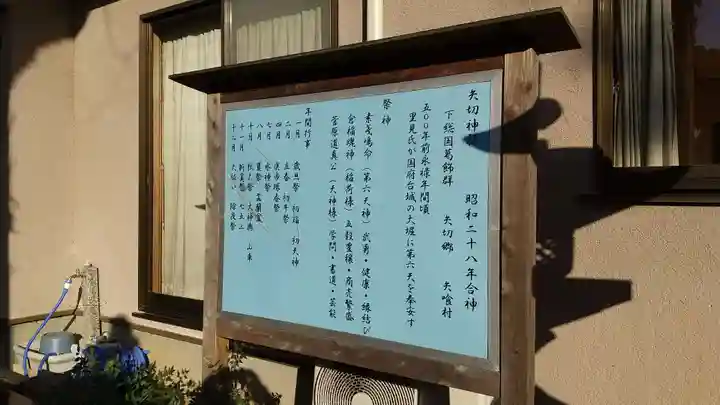 矢切神社 昭和二十八年合神
下総国葛飾群 矢切郷 矢喰村
五〇〇年前永禄年間頃
里見氏が国府台城の大堀に第六天を奉安す
祭神
素戔嗚命(第六天神)武勇・健康・縁結び
倉稲魂神(稲荷様)五穀豊穣・商売繁盛
菅原道真公(天神様)学問・書道・芸能
年間行事
一月 歳旦祭 初詣 初天神
二月 立春 初午祭
四月
七月 水神祭
八月 夏祭
十月 大神輿 山車
十一月 新嘗祭 七五三
十二月 大祓い 除夜祭